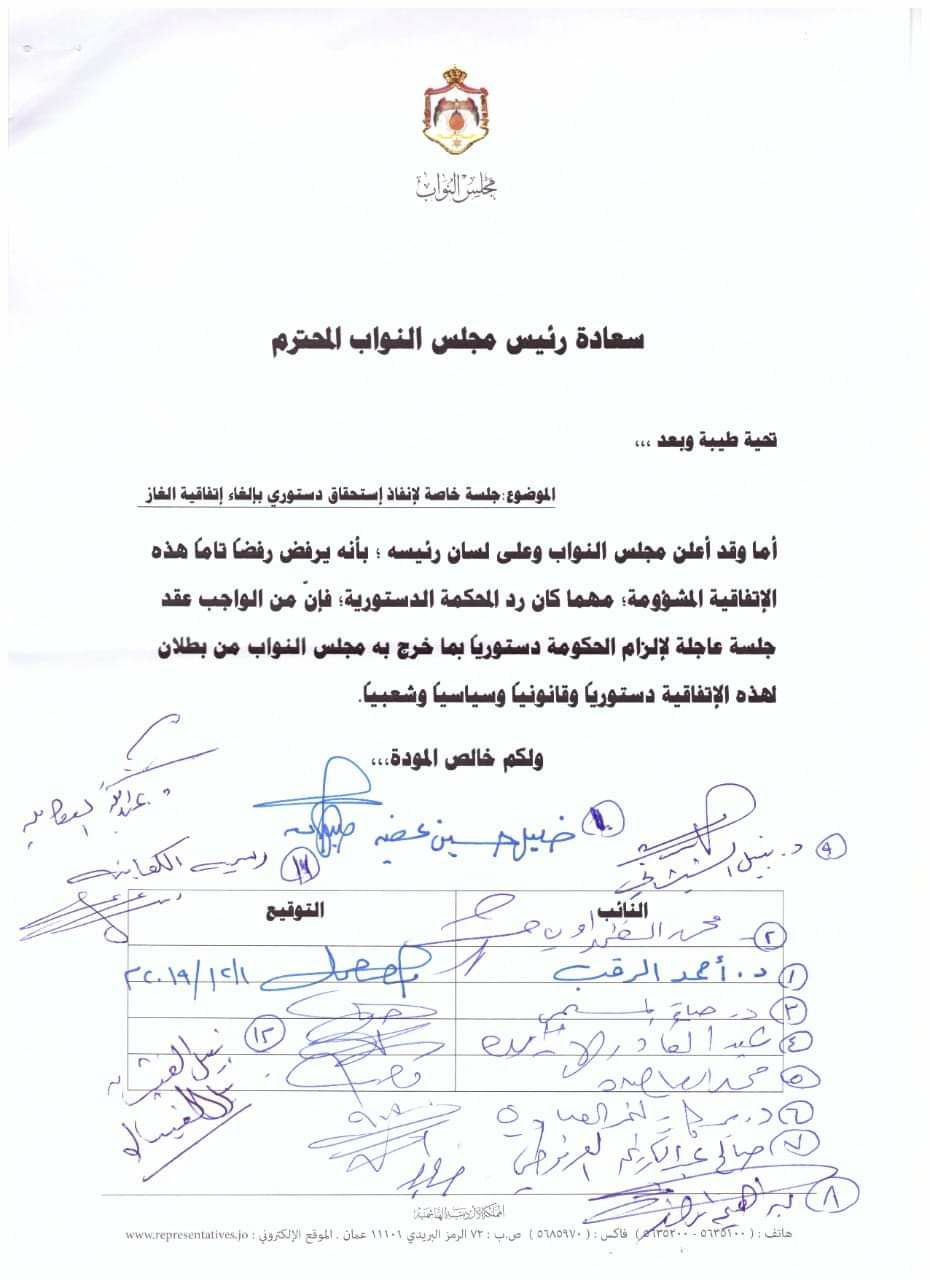 مجلس النواب
سعادة رئيس مجلس النواب المحترم
تحية طيبة وبعد ,,,
الموضوع:جلسة خاصة لإنفاذ إستحقاق دستوري بإلغاء إتفاقية الغاز
أما وقد أعلن مجلس النواب وعلى لسان رئيسه ؛ بأنه يرفض رفضاً تاماً هذه
الإتفاقية المشؤومة؛ مهما كان رد المحكمة الدستورية؛ فإنّ من الواجب عقد
جلسة عاجلة لإلزام الحكومة دستورياً بما خرج به مجلس النواب من بطلان
لهذه الإتفاقية دستورياً وقانونياً وسياسياً وشعبياً.
ولكم خالص المودة,,,
١٠ خليل حسين عطيه
٩ د. نبيل الشيشاني
١١
النائب التوقيع
٢ محمد
١ د. أحمد الرقب
٣ د.
٤
٥ محمد
١٢ نبيل الغيشان
٦ د.
٧
٨
المملكة الأردنية الهاشمية
هاتف : ( ٥٦٣٥١٠٠ - ٥٦٣٥٢٠٠ ) فاكس : ( ٥٦٨٥٩٧٠ ) ص.ب : ٧٢ الرمز البريدي ١١١٠١ عمان . الموقع الإلكتروني : www.representatives.jo